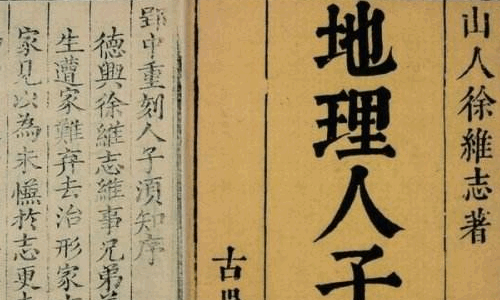 山人徐維志著
地理人子
古
郢中重刻人子須知序
德興徐維志維事兄弟
生遭家難弃去治形家
家見以為未愜於志更